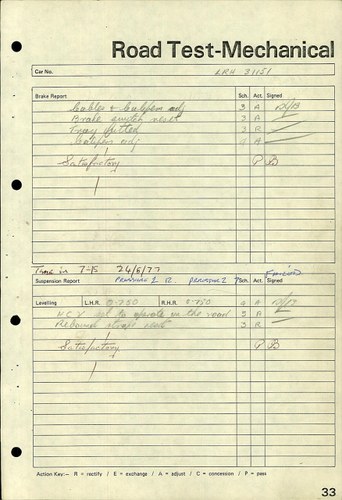 Road Test-Mechanical
Car No. LRH 31151
Brake Report Sch. Act. Signed
Cables & Calipers adj 3 A
Brake switch reset 3 A
Tray fitted 3 R
Calipers adj A
Satisfactory P B
Time in 7-15 24/6/77
Suspension Report Sch. Act. Signed
Levelling L.H.R. 8.750 R.H.R. 8.750 A
H.C.V set to operate on the road 3 A
Rebound straps reset 3 R
Satisfactory P B
Action Key:– R = rectify / E = exchange / A = adjust / C = concession / P = pass
33